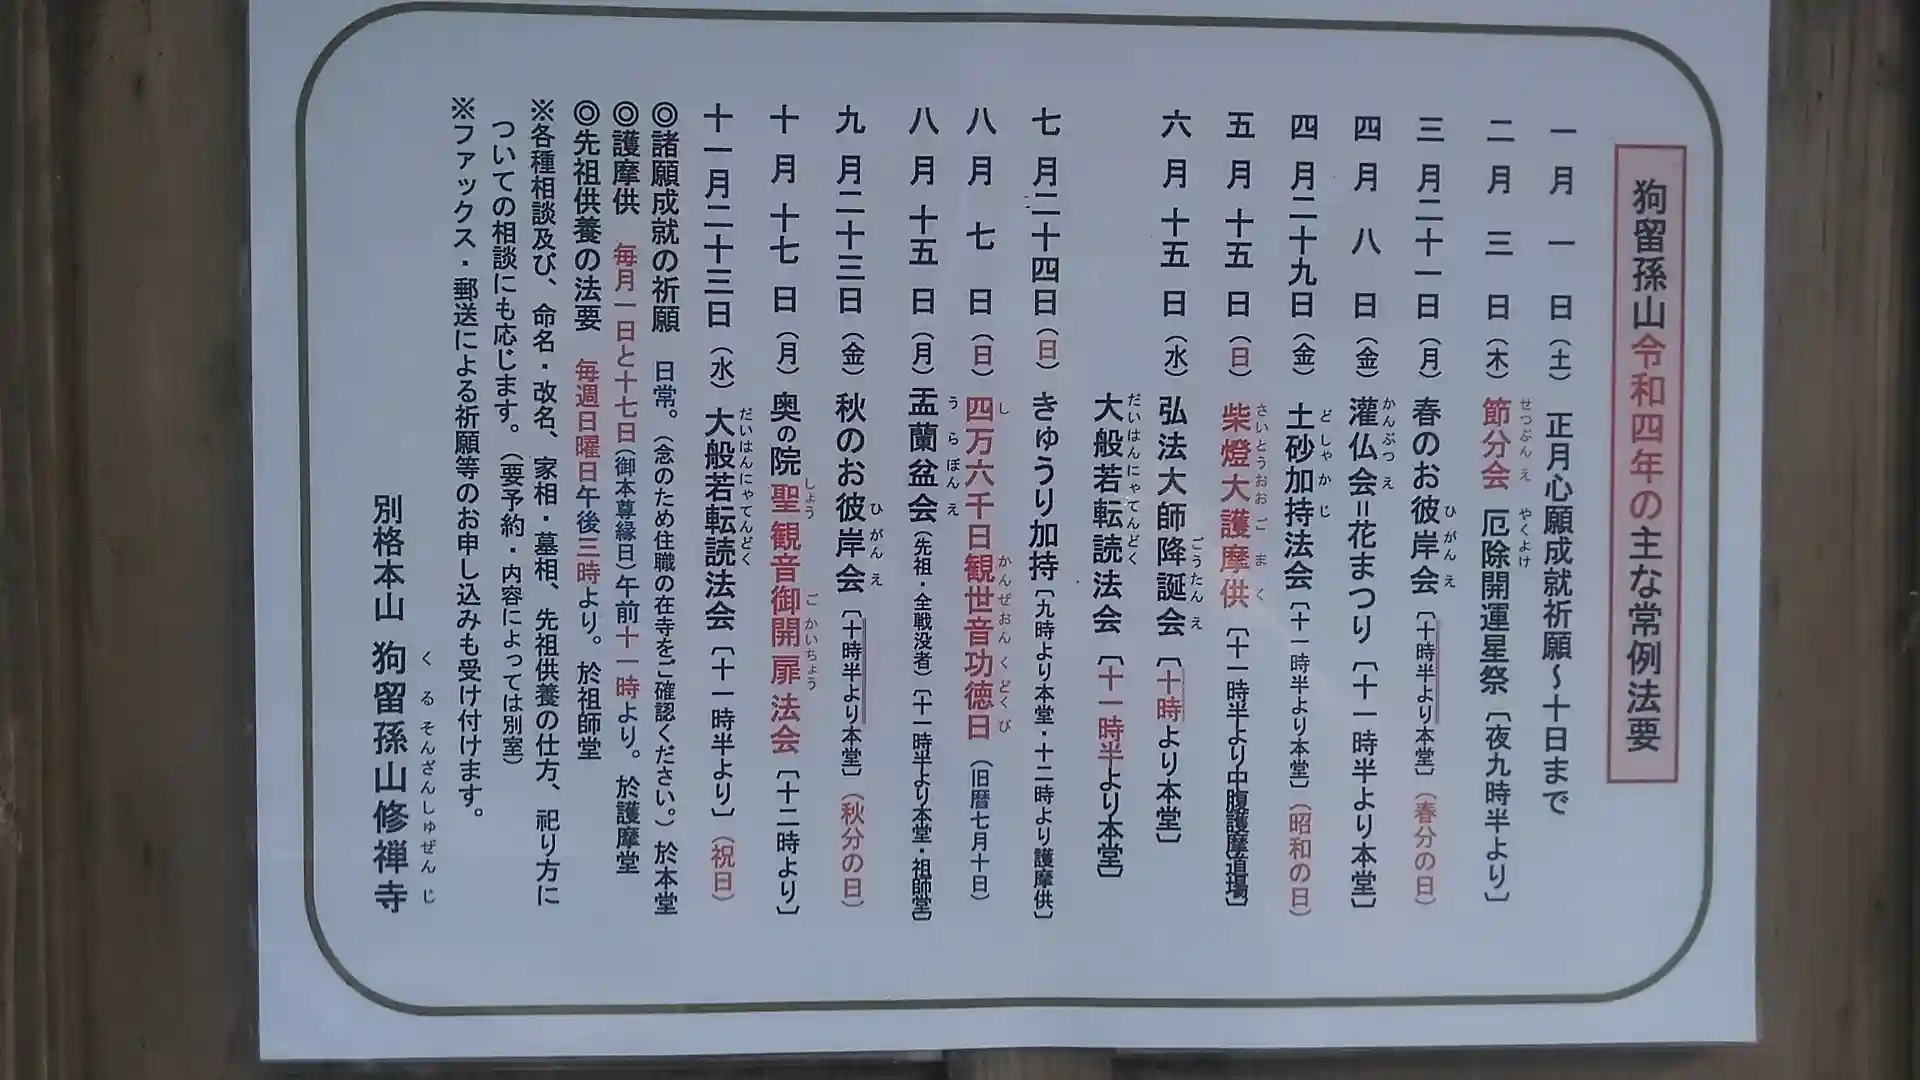 狗留孫山令和四年の主な常例法要
一月一日（土）正月心願成就祈願～十日まで
二月三日（木）節分会 厄除開運星祭〔夜九時半より〕
せつぶんえ やくよけ
三月二十一日（月）春のお彼岸会〔十時半より本堂〕（春分の日）
ひがんえ
四月八日（金）灌仏会＝花まつり〔十一時半より本堂〕
かんぶつえ
四月二十九日（金）土砂加持法会〔十一時半より本堂〕（昭和の日）
どしゃかじ
五月十五日（日）柴燈大護摩供〔十一時半より中腹護摩道場〕
さいとうおおごまく
六月十五日（水）弘法大師降誕会〔十時より本堂〕
ごうたんえ
大般若転読法会〔十一時半より本堂〕
だいはんにゃてんどく
七月二十四日（日）きゅうり加持〔九時より本堂・十二時より護摩供〕
八月七日（日）四万六千日観世音功徳日（旧暦七月十日）
し かんぜおんくどくび
八月十五日（月）盂蘭盆会（先祖・全戦没者）〔十一時半より本堂・祖師堂〕
うらぼんえ
九月二十三日（金）秋のお彼岸会〔十時半より本堂〕（秋分の日）
ひがんえ
十月十七日（月）奥の院聖観音御開扉法会〔十二時より〕
しょう ごかいちょう
十一月二十三日（水）大般若転読法会〔十一時半より〕（祝日）
だいはんにゃてんどく
◎諸願成就の祈願 日常。（念のため住職の在寺をご確認ください。）於本堂
◎護摩供 毎月一日と十七日（御本尊縁日）午前十一時より。於護摩堂
◎先祖供養の法要 毎週日曜日午後三時より。於祖師堂
※各種相談及び、命名・改名、家相・墓相、先祖供養の仕方、祀り方に
ついての相談にも応じます。（要予約・内容によっては別室）
※ファックス・郵送による祈願等のお申し込みも受け付けます。
別格本山 狗留孫山修禅寺
くるそんざんしゅぜんじ